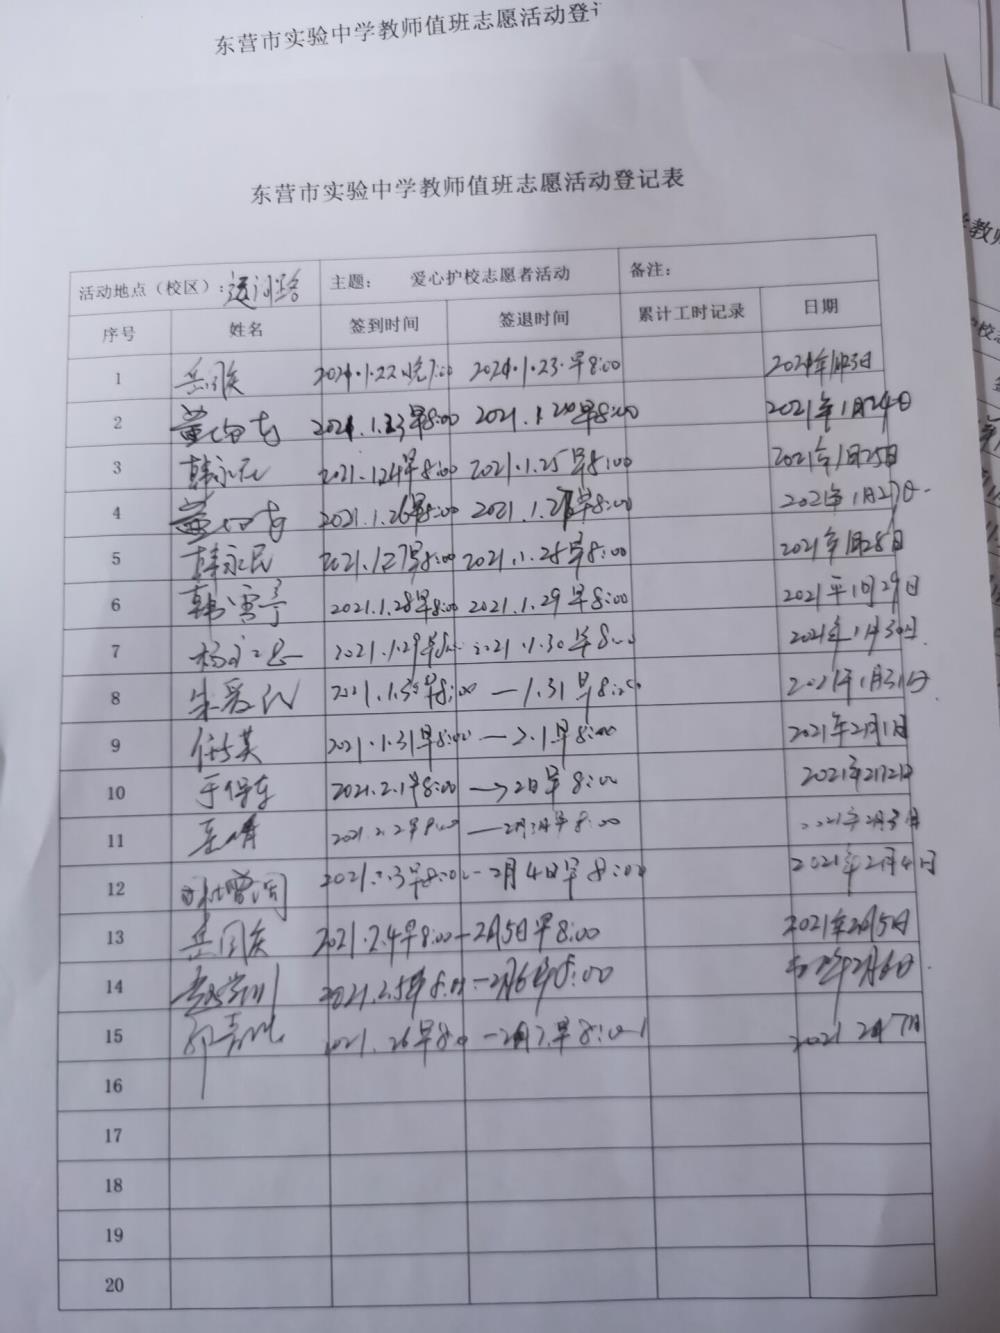 东营市实验中学教师值班志愿活动登
东营市实验中学教师值班志愿活动登记表
活动地点（校区）： 主题： 爱心护校志愿者活动 备注：
序号 姓名 签到时间 签退时间 累计工时记录 日期
1 2021.1.22晚7:00 2021.1.23.早8:00 2021年1月23日
2 2021.1.23早8:00 2021.1.24早8:00 2021年1月24日
3 韩永民 2021.1.24早8:00 2021.1.25早8:00 2021年1月25日
4 2021.1.26早8:00 2021.1.27早8:00 2021年1月27日
5 韩永民 2021.1.27早8:00 2021.1.28早8:00 2021年1月28日
6 韩雪亭 2021.1.28早8:00 2021.1.29早8:00 2021年1月29日
7 2021.1.29早8:00 2021.1.30早8:00 2021年1月30日
8 朱爱民 2021.1.30早8:00 —1.31早8:00 2021年1月31日
9 2021.1.31早8:00 —2.1早8:00 2021年2月1日
10 于保东 2021.2.1早8:00 →2日早8:00 2021年2月2日
11 2021.2.2早8:00 —2月3日早8:00 2021年2月3日
12 2021.2.3早8:00 —2月4日早8:00 2021年2月4日
13 岳国庆 2021.2.4早8:00 —2月5日早8:00 2021年2月5日
14 2021.2.5早8:00 —2月6早8:00 2021年2月6日
15 2021.2.6早8:00 —2月7早8:00 2021 2月7日
16
17
18
19
20